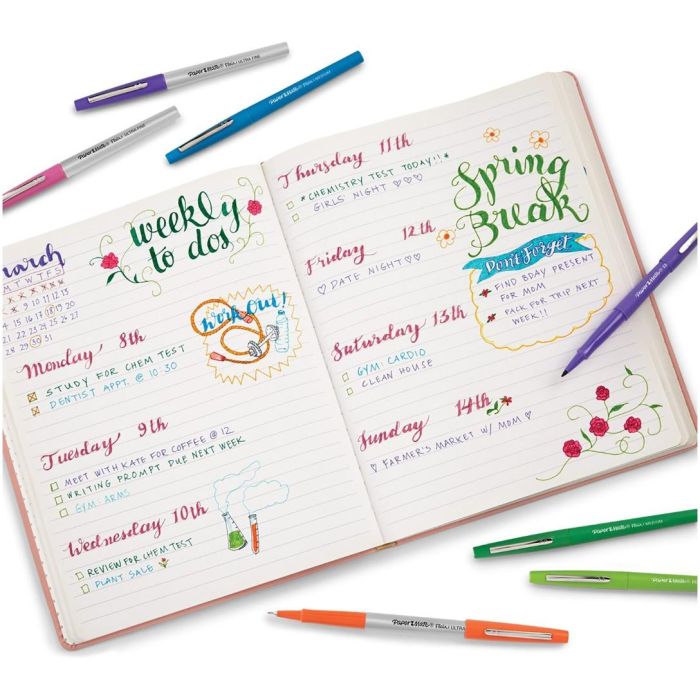 weekly
to dos
arch
M T W T F S
14 15 16 17 18 19 20
21 22 23 24 25 26 27
28 29 30 31
Work Out!
Monday 8th
STUDY FOR CHEM TEST
DENTIST APPT. @ 10 30
Tuesday 9th
MEET WITH KATE FOR COFFEE @ 12
WRITING PROMPT DUE NEXT WEEK
GYM: ARMS
Wednesday 10th
REVIEW FOR CHEM TEST
PLANT SALE
Thursday 11th
*CHEMISTRY TEST TODAY!!*
GIRLS' NIGHT ♡♡♡
Friday 12th
♡ DATE NIGHT ♡♡
Saturday 13th
GYM: CARDIO
CLEAN HOUSE
Sunday 14th
♡ FARMER'S MARKET W/ MOM ♡
Spring
Break
Don't Forget
FIND BDAY PRESENT
FOR MOM
PACK FOR TRIP NEXT
WEEK!!
Paper Mate® Flair. ULTRA FINE
Paper Mate® Flair. MEDIUM
Paper Mate® Flair. ULTRA FINE
Paper Mate® Flair.
Paper Mate® Flair. MEDIUM
Paper Mate® Flair.
Paper Mate® Flair. ULTRA